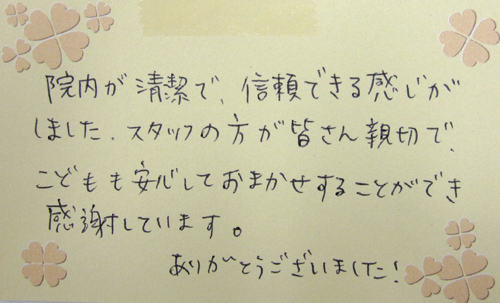 院内が清潔で、信頼できる感じが
しました。スタッフの方が皆さん親切で、
こどもも安心しておまかせすることができ
感謝しています。
ありがとうございました!